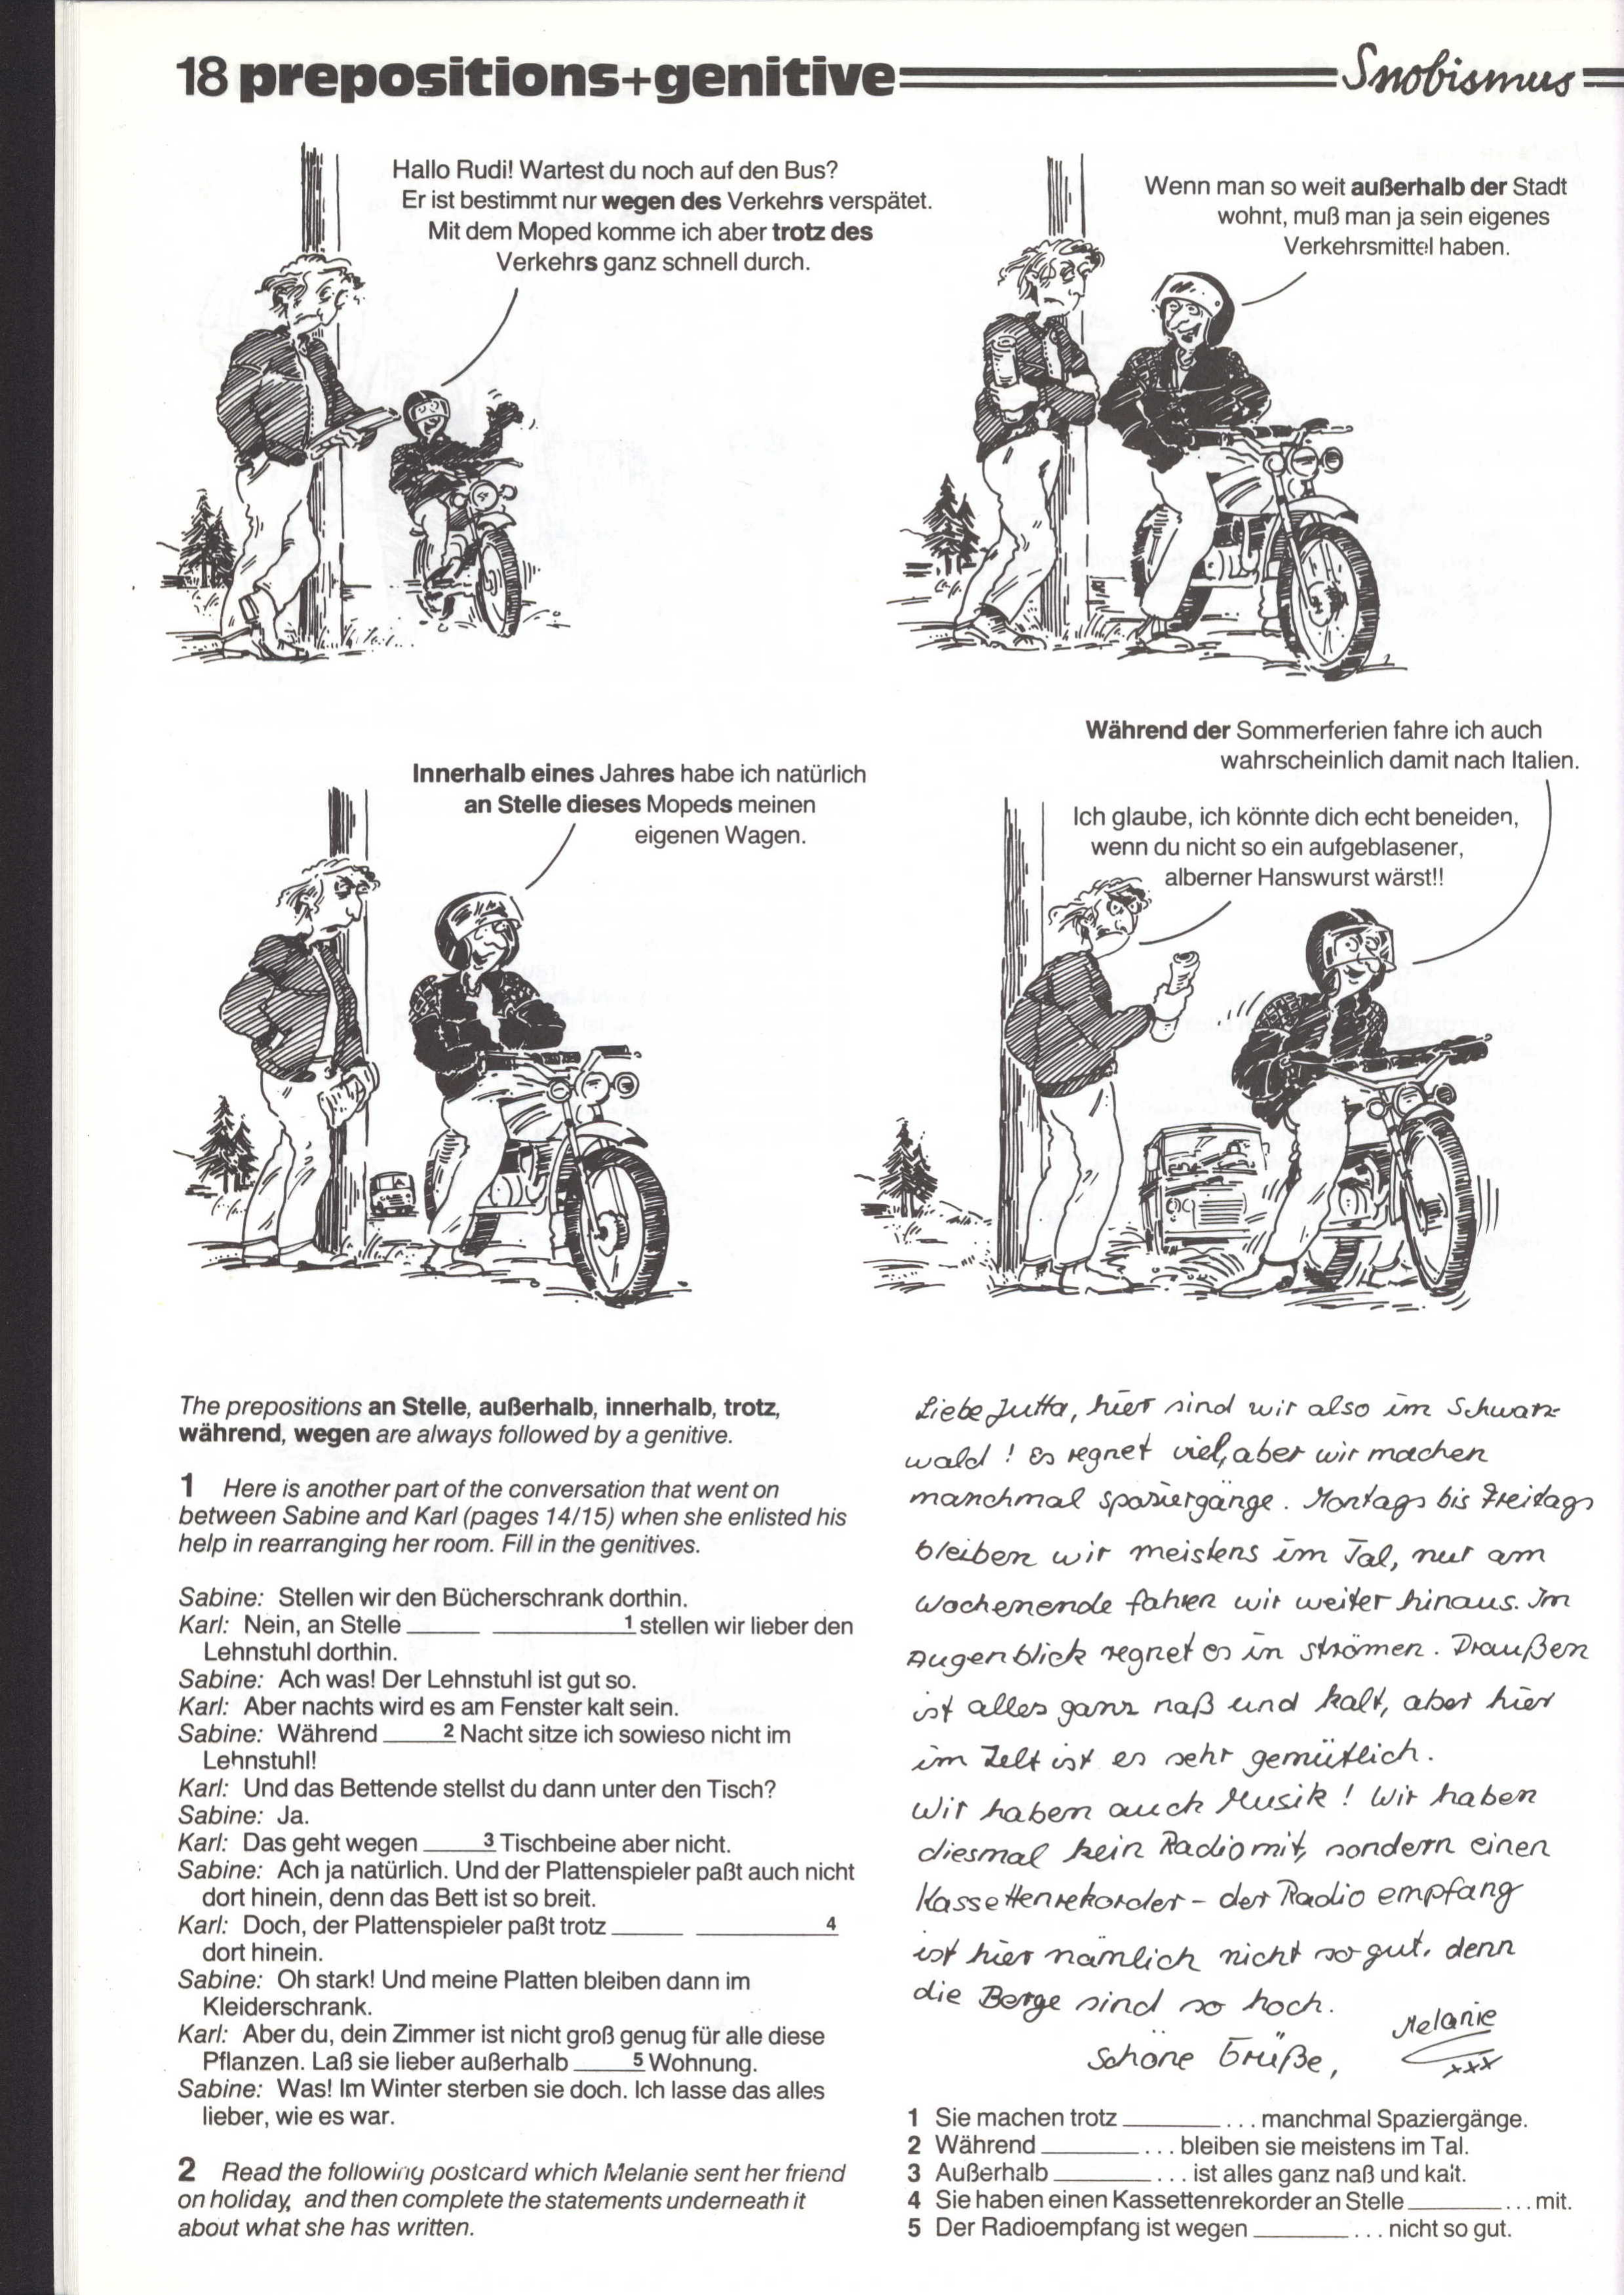 18 prepositions+genitive
Snobismus
Hallo Rudi! Wartest du noch auf den Bus?
Er ist bestimmt nur wegen des Verkehrs verspätet.
Mit dem Moped komme ich aber trotz des
Verkehrs ganz schnell durch.
Wenn man so weit außerhalb der Stadt
wohnt, muß man ja sein eigenes
Verkehrsmittel haben.
Innerhalb eines Jahres habe ich natürlich
an Stelle dieses Mopeds meinen
eigenen Wagen.
Während der Sommerferien fahre ich auch
wahrscheinlich damit nach Italien.
Ich glaube, ich könnte dich echt beneiden,
wenn du nicht so ein aufgeblasener,
alberner Hanswurst wärst!!
The prepositions an Stelle, außerhalb, innerhalb, trotz,
während, wegen are always followed by a genitive.
1 Here is another part of the conversation that went on
between Sabine and Karl (pages 14/15) when she enlisted his
help in rearranging her room. Fill in the genitives.
Sabine: Stellen wir den Bücherschrank dorthin.
Karl: Nein, an Stelle _____ _________1 stellen wir lieber den
Lehnstuhl dorthin.
Sabine: Ach was! Der Lehnstuhl ist gut so.
Karl: Aber nachts wird es am Fenster kalt sein.
Sabine: Während ____2 Nacht sitze ich sowieso nicht im
Lehnstuhl!
Karl: Und das Bettende stellst du dann unter den Tisch?
Sabine: Ja.
Karl: Das geht wegen ____3 Tischbeine aber nicht.
Sabine: Ach ja natürlich. Und der Plattenspieler paßt auch nicht
dort hinein, denn das Bett ist so breit.
Karl: Doch, der Plattenspieler paßt trotz _____ _________4
dort hinein.
Sabine: Oh stark! Und meine Platten bleiben dann im
Kleiderschrank.
Karl: Aber du, dein Zimmer ist nicht groß genug für alle diese
Pflanzen. Laß sie lieber außerhalb ____5 Wohnung.
Sabine: Was! Im Winter sterben sie doch. Ich lasse das alles
lieber, wie es war.
2 Read the following postcard which Melanie sent her friend
on holiday, and then complete the statements underneath it
about what she has written.
Liebe Jutta, hier sind wir also im Schwarz-
wald! Es regnet viel, aber wir machen
manchmal Spaziergänge. Montags bis Freitags
bleiben wir meistens im Tal, nur am
Wochenende fahren wir weiter hinaus. Im
Augenblick regnet es in Strömen. Draußen
ist alles ganz naß und kalt, aber hier
im Zelt ist es sehr gemütlich.
Wir haben auch Musik! Wir haben
diesmal kein Radio mit, sondern einen
Kassettenrekorder – der Radioempfang
ist hier nämlich nicht so gut, denn
die Berge sind so hoch.
Schöne Grüße,
Melanie
xxx
1 Sie machen trotz _______ ... manchmal Spaziergänge.
2 Während _______ ... bleiben sie meistens im Tal.
3 Außerhalb _______ ... ist alles ganz naß und kalt.
4 Sie haben einen Kassettenrekorder an Stelle _______ ... mit.
5 Der Radioempfang ist wegen _______ ... nicht so gut.